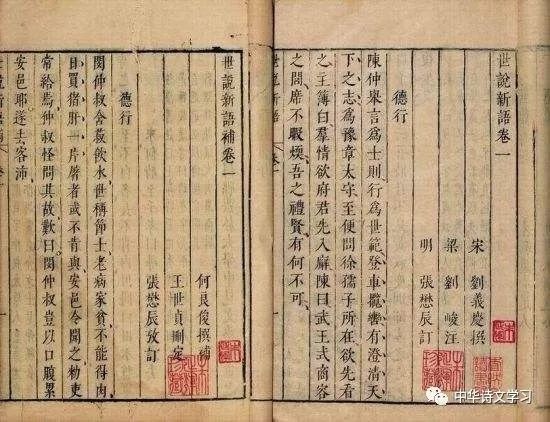 世說新語卷一
宋 劉義慶撰
梁 劉峻注
明 張懋辰訂
德行
陳仲舉言為士則行為世範登車攬轡有澄清天
下之志為豫章太守至便問徐孺子所在欲先看
之主簿曰羣情欲府君先入廨陳曰武王式商容
之閭席不暇煗吾之禮賢有何不可
世說新語 卷一
世說新語補卷一
何良俊撰補
王世貞刪定
張懋辰攷訂
德行
閔仲叔含菽飲水世稱節士老病家貧不能得肉
日買猪肝一片屠者或不肯與安邑令聞之勑吏
常給焉仲叔怪問其故歎曰閔仲叔豈以口腹累
安邑耶遂去客沛
中华诗文学习